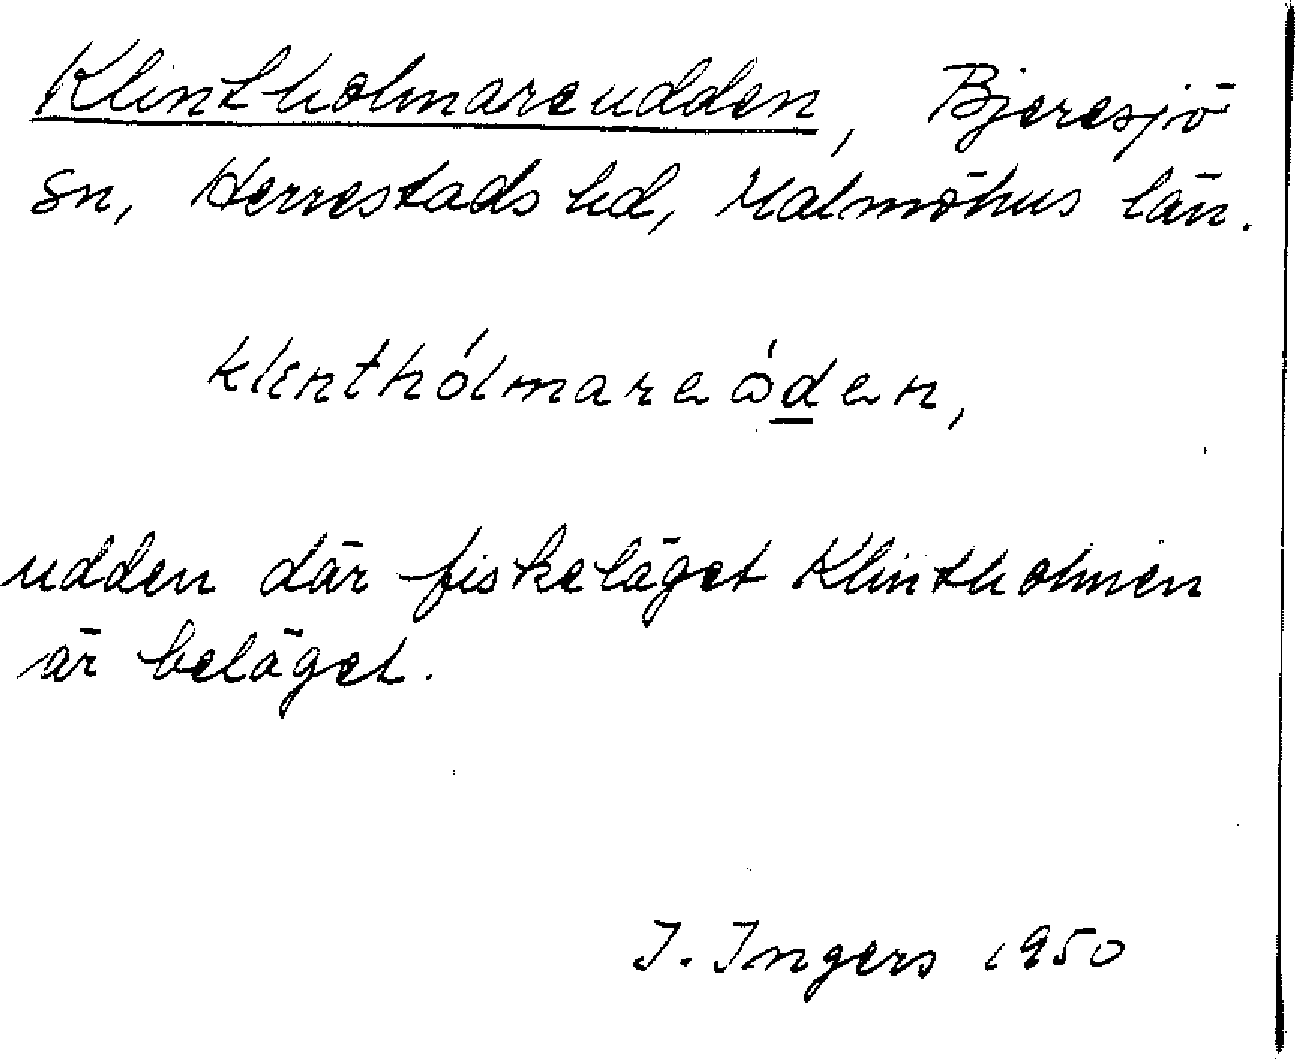 Klintholmareudden, Bjeresjö
sn, Herrestads hd, Malmöhus län.
klenthólmareǿden,
udden där fiskeläget Klintholmen
är beläget.
I. Ingers 1950